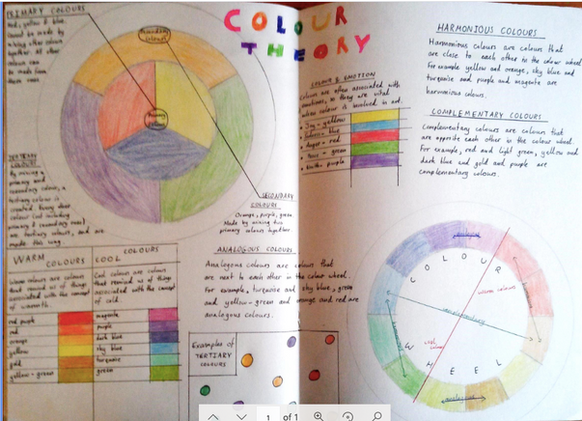 PRIMARY COLOURS
Red, yellow & blue.
Cannot be made by
mixing other colour
together. All
other colours
can be
made from
these ones
Secondary
Colours
Primary
Colours
COLOUR
THEORY
TERTIARY
COLOURS
By mixing a
primary and
secondary colour, a
tertiary colour is
created. Every other
colour (not including
primary & secondary ones)
are tertiary colours, and are
made this way.
SECONDARY
COLOURS
Orange, purple, green
Made by mixing two
primary colours together.
COLOUR & EMOTION
Colours are often associated with
emotions, so they are vital
when colour is involved in art.
Joy - yellow
- blue
Anger - red
- green
- purple
HARMONIOUS COLOURS
Harmonious colours are colours that
are close to each other in the colour wheel.
For example yellow and orange, sky blue and
turquoise and purple and magenta are
harmonious colours.
COMPLEMENTARY COLOURS
Complementary colours are colours that
are opposite each other in the colour wheel.
For example, red and light green, yellow and
dark blue and gold and purple are
complementary colours.
WARM COLOURS
Warm colours are colours
that remind us of things
associated with the concept
of warmth.
red purple
red
orange
yellow
gold
yellow-green
COOL COLOURS
Cool colours are colours
that remind us of things
associated with the concept
of cold.
magenta
purple
dark blue
sky blue
turquoise
green
ANALOGOUS COLOURS
Analogous colours are colours that
are next to each other in the colour wheel.
For example, turquoise and sky blue, green
and yellow-green and orange and red are
analogous colours.
Examples of
TERTIARY
COLOURS
COLOUR
WHEEL
warm colours
cool colours
complementary
analogous
1 of 1